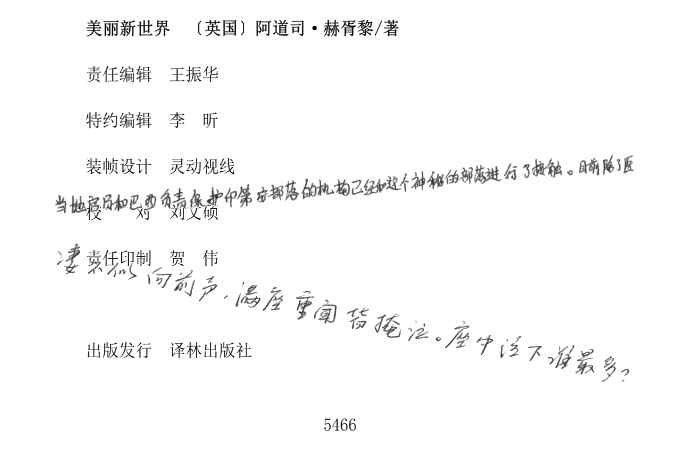 美丽新世界 〔英国〕阿道司·赫胥黎/著
责任编辑 王振华
特约编辑 李 昕
装帧设计 灵动视线
当地官员和巴西负责保护印第安部落的机构已经和这个神秘的部落进行了接触。目前除了医
校 对 刘文硕
责任印制 贺 伟
凄不似向前声,满座重闻皆掩泣。座中泣下谁最多?
出版发行 译林出版社
5466